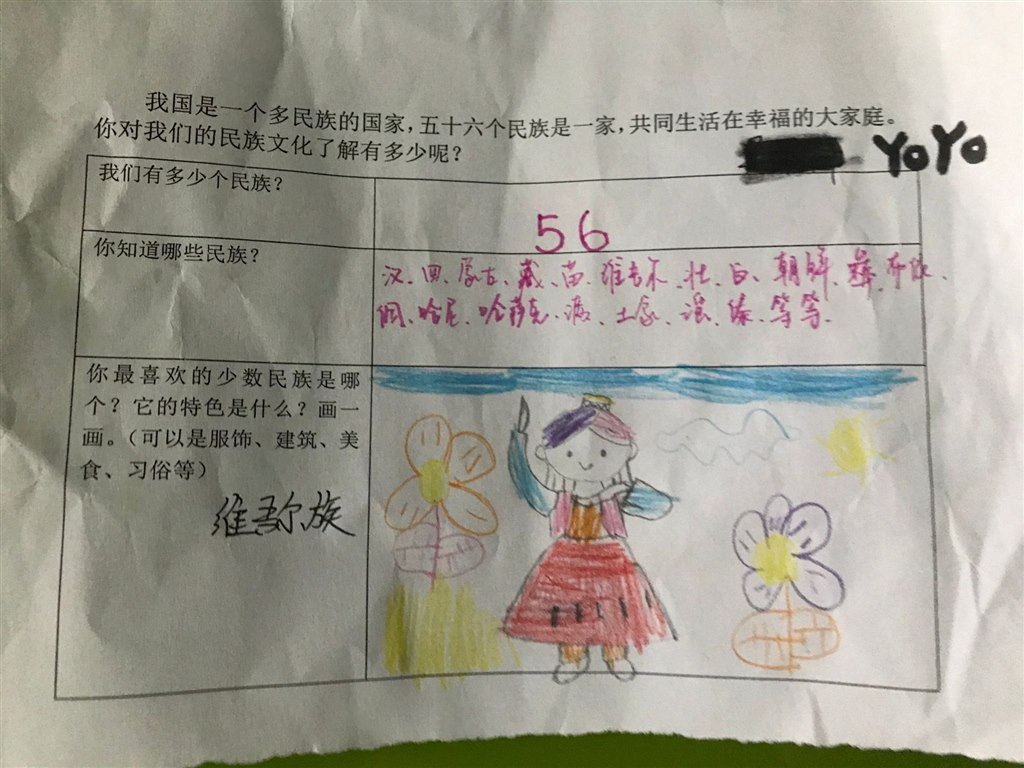 我国是一个多民族的国家，五十六个民族是一家，共同生活在幸福的大家庭。
你对我们的民族文化了解有多少呢？
YoYo
我们有多少个民族？
56
你知道哪些民族？
汉、回、蒙古、藏、苗、维吾尔、壮、白、朝鲜、彝、布依、
侗、哈尼、哈萨克、满、土家、瑶、傣、等等.
你最喜欢的少数民族是哪
个？它的特色是什么？画一
画。（可以是服饰、建筑、美
食、习俗等）
维吾尔族